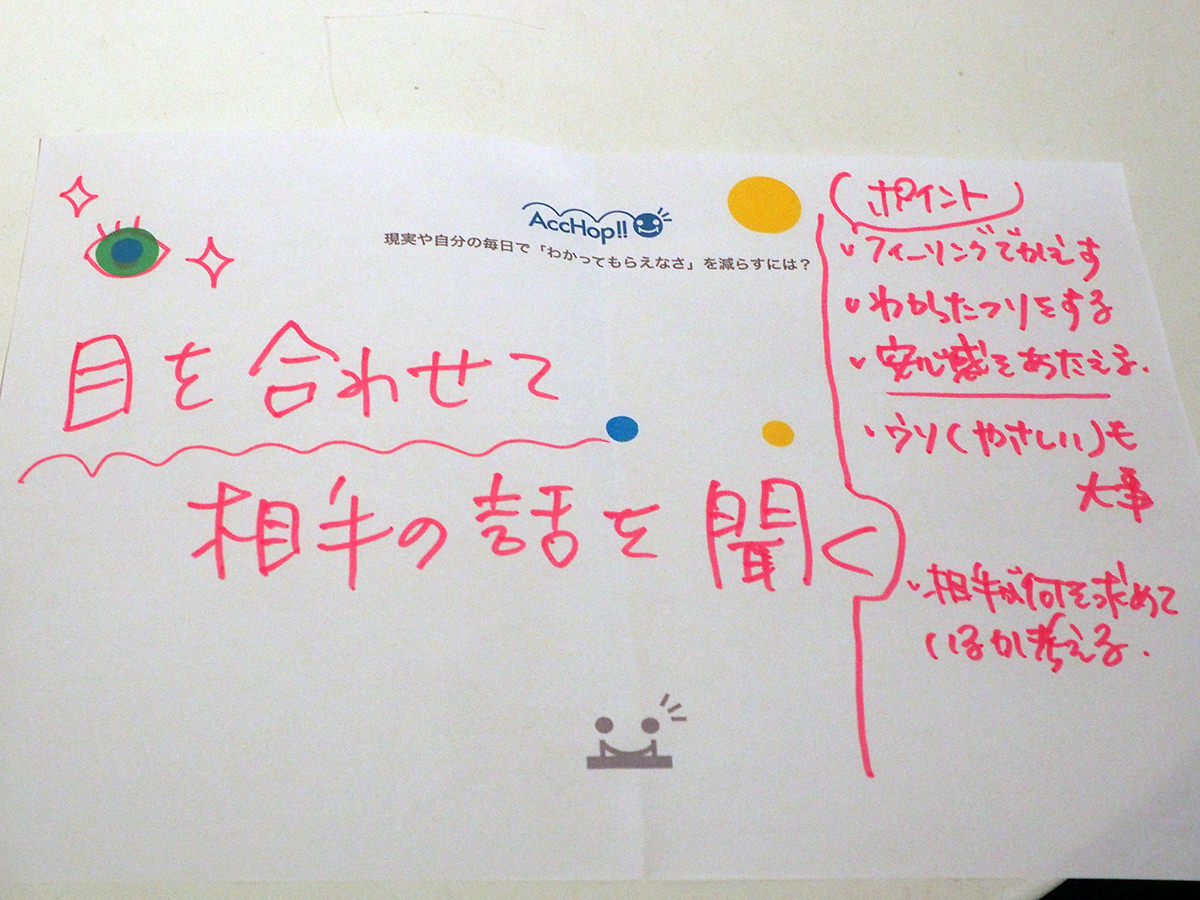 AccHop!!
現実や自分の毎日で「わかってもらえなさ」を減らすには？
目を合わせて
相手の話を聞く
ポイント
・フィーリングでかえす
・わかったつりをする
・安心感をあたえる.
・ウソ(やさしい)も
大事
・相手が何を求めて
いるか考える.